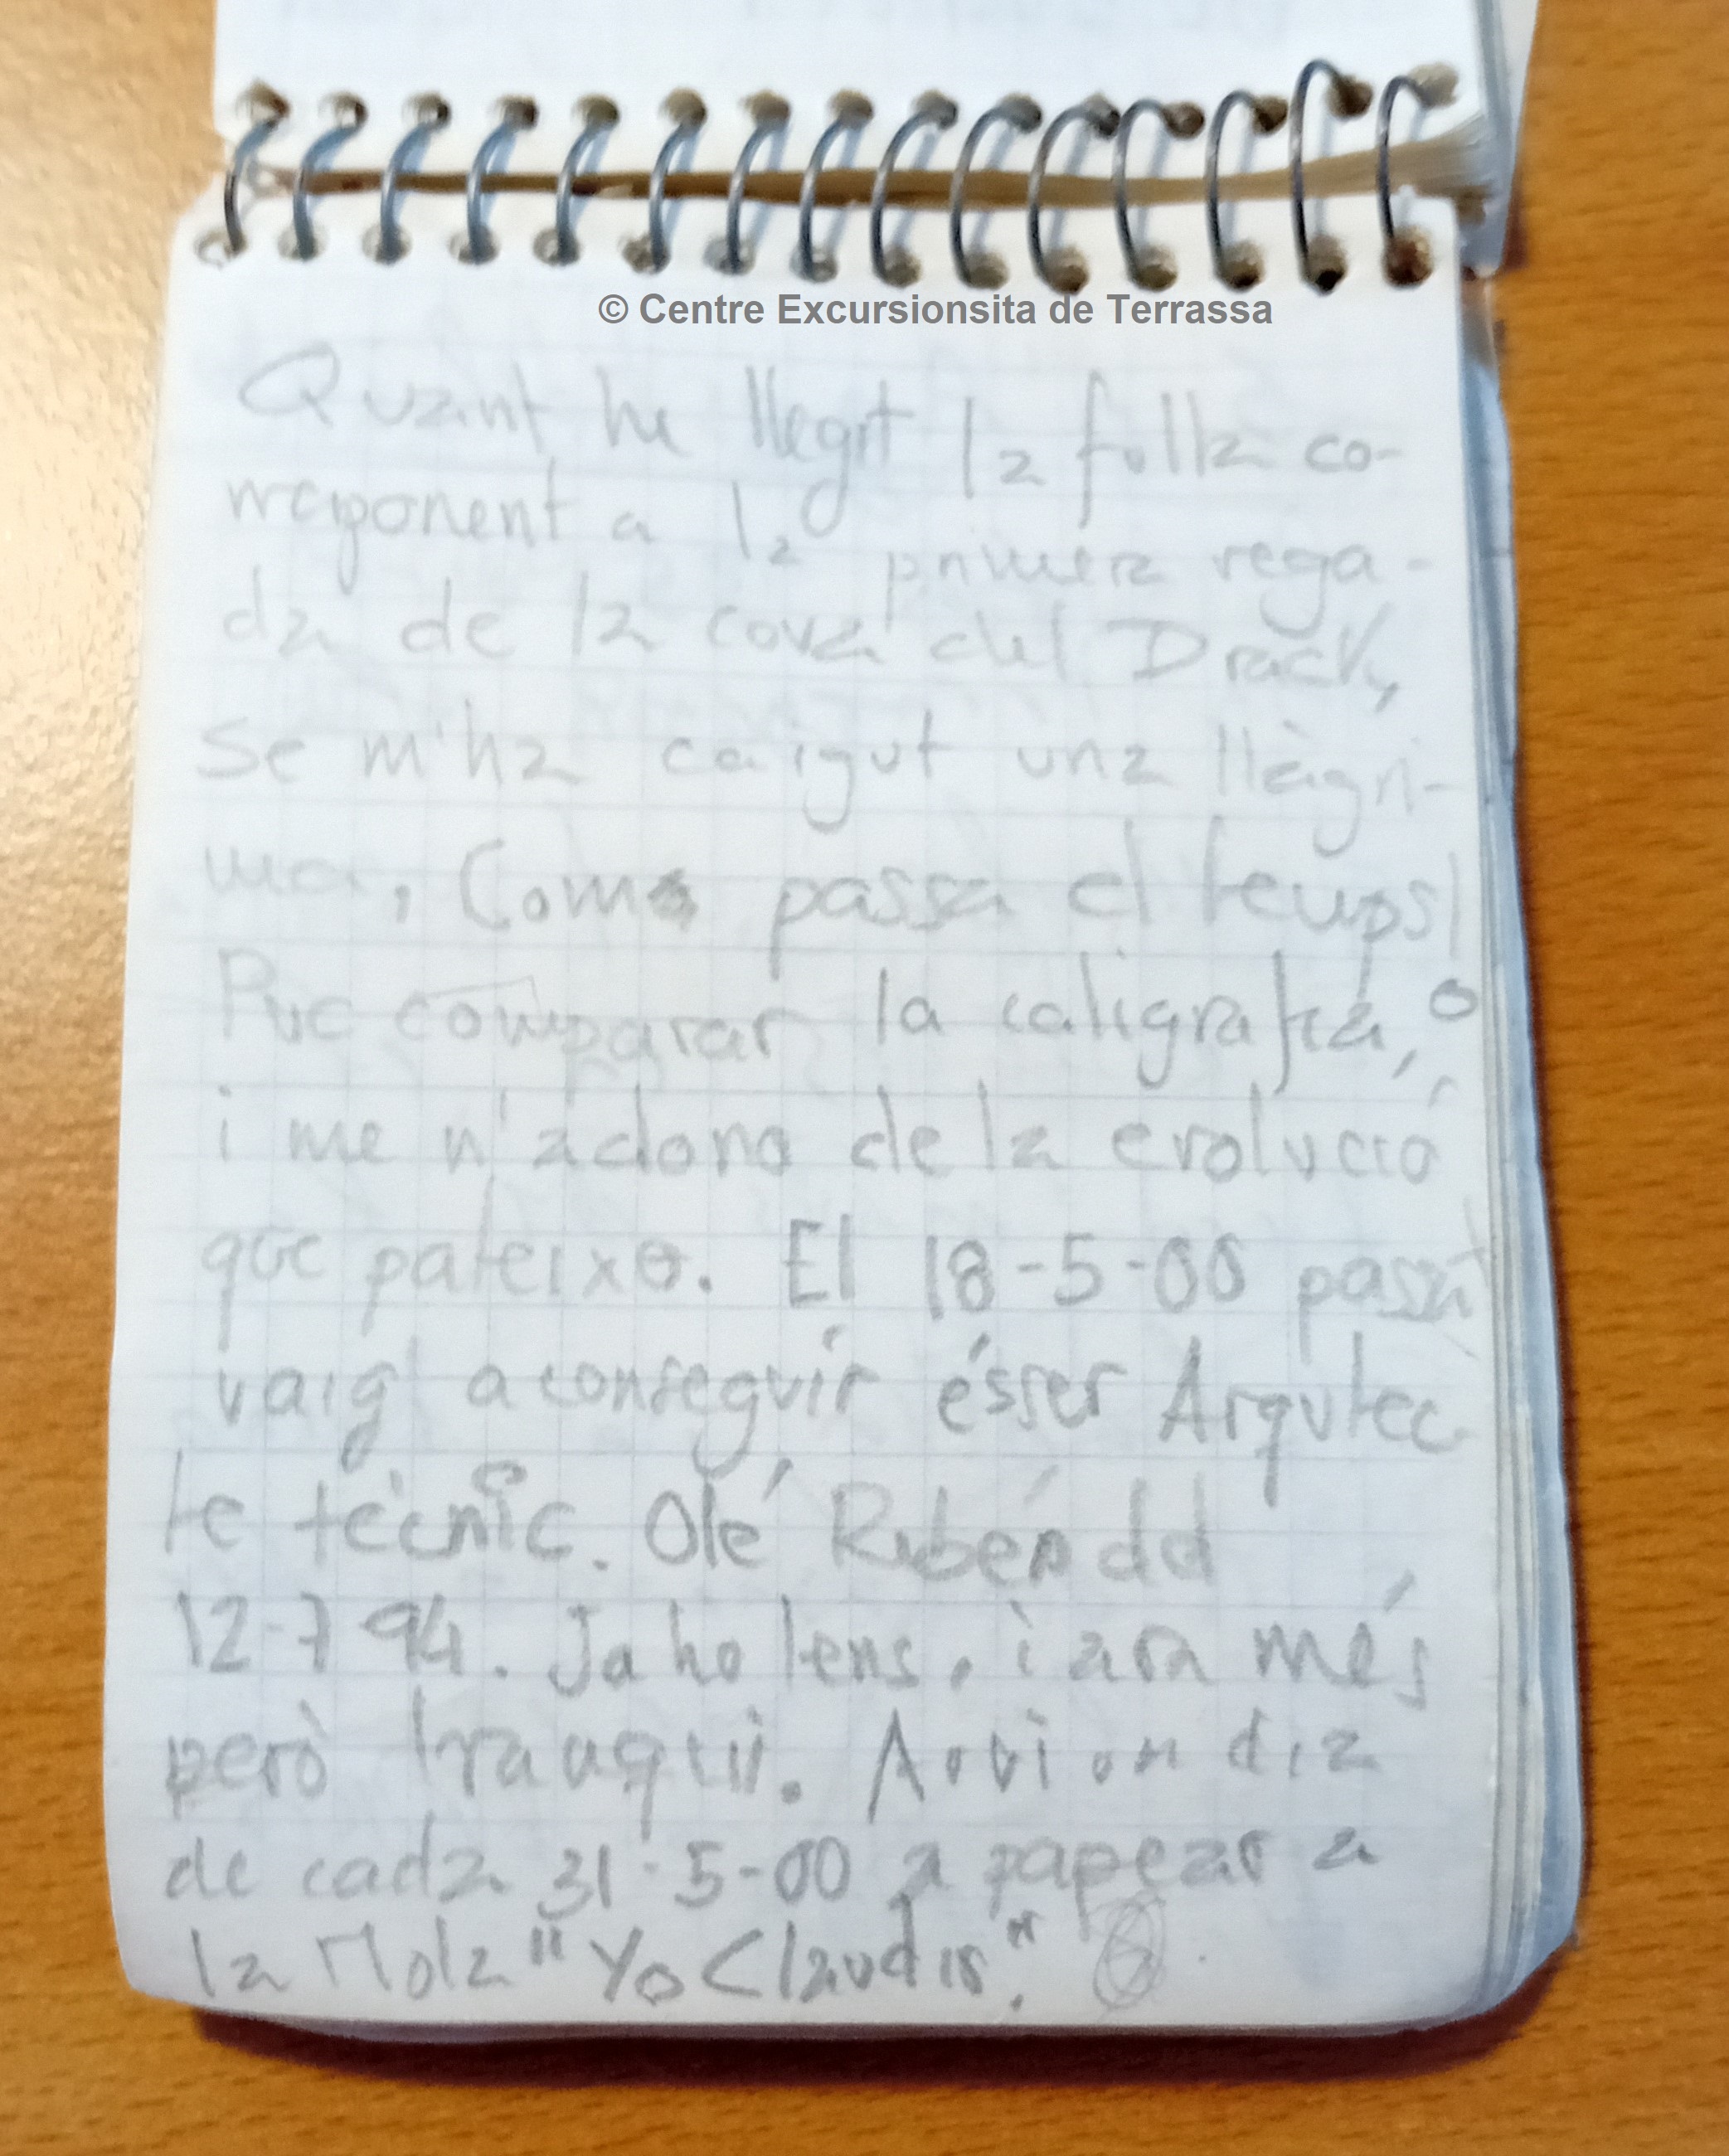 © Centre Excursionsita de Terrassa
Quant he llegit la fulla co-
rreponent a la primera rega-
da de la cova del Drack,
se m'ha caigut una llàgri-
ma. Com passa el temps!
Puc comparar la caligrafia,
i me n'adono de la evolució
que pateixo. El 18-5-00 passat
vaig aconseguir ésser Arqutec
te tècnic. Olé Rubén dd
12-7 94. Ja ho tens, i ara més
però tranquil. Avui un dia
de cada 31-5-00 a papear a
la Mola "Yo Claudis".